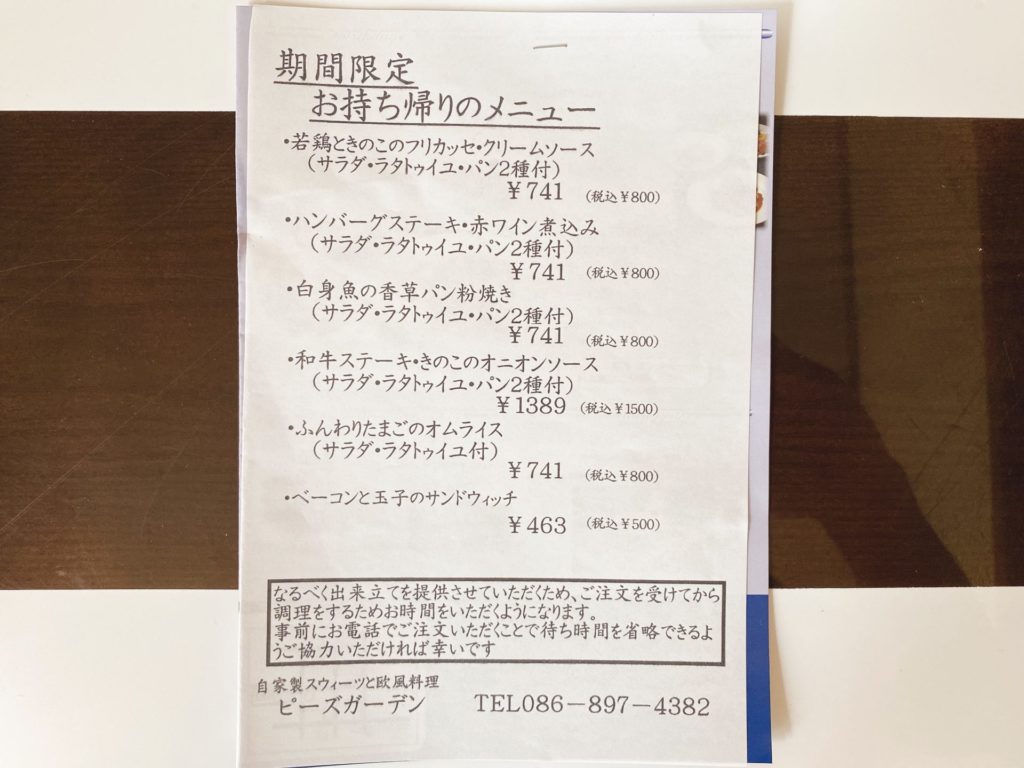 期間限定
お持ち帰りのメニュー
・若鶏ときのこのフリカッセ・クリームソース
(サラダ・ラタトゥイユ・パン2種付)
¥741 (税込¥800)
・ハンバーグステーキ・赤ワイン煮込み
(サラダ・ラタトゥイユ・パン2種付)
¥741 (税込¥800)
・白身魚の香草パン粉焼き
(サラダ・ラタトゥイユ・パン2種付)
¥741 (税込¥800)
・和牛ステーキ・きのこのオニオンソース
(サラダ・ラタトゥイユ・パン2種付)
¥1389 (税込¥1500)
・ふんわりたまごのオムライス
(サラダ・ラタトゥイユ付)
¥741 (税込¥800)
・ベーコンと玉子のサンドウィッチ
¥463 (税込¥500)
なるべく出来立てを提供させていただくため、ご注文を受けてから
調理をするためお時間をいただくようになります。
事前にお電話でご注文いただくことで待ち時間を省略できるよ
うご協力いただければ幸いです
自家製スウィーツと欧風料理
ピーズガーデン TEL086-897-4382